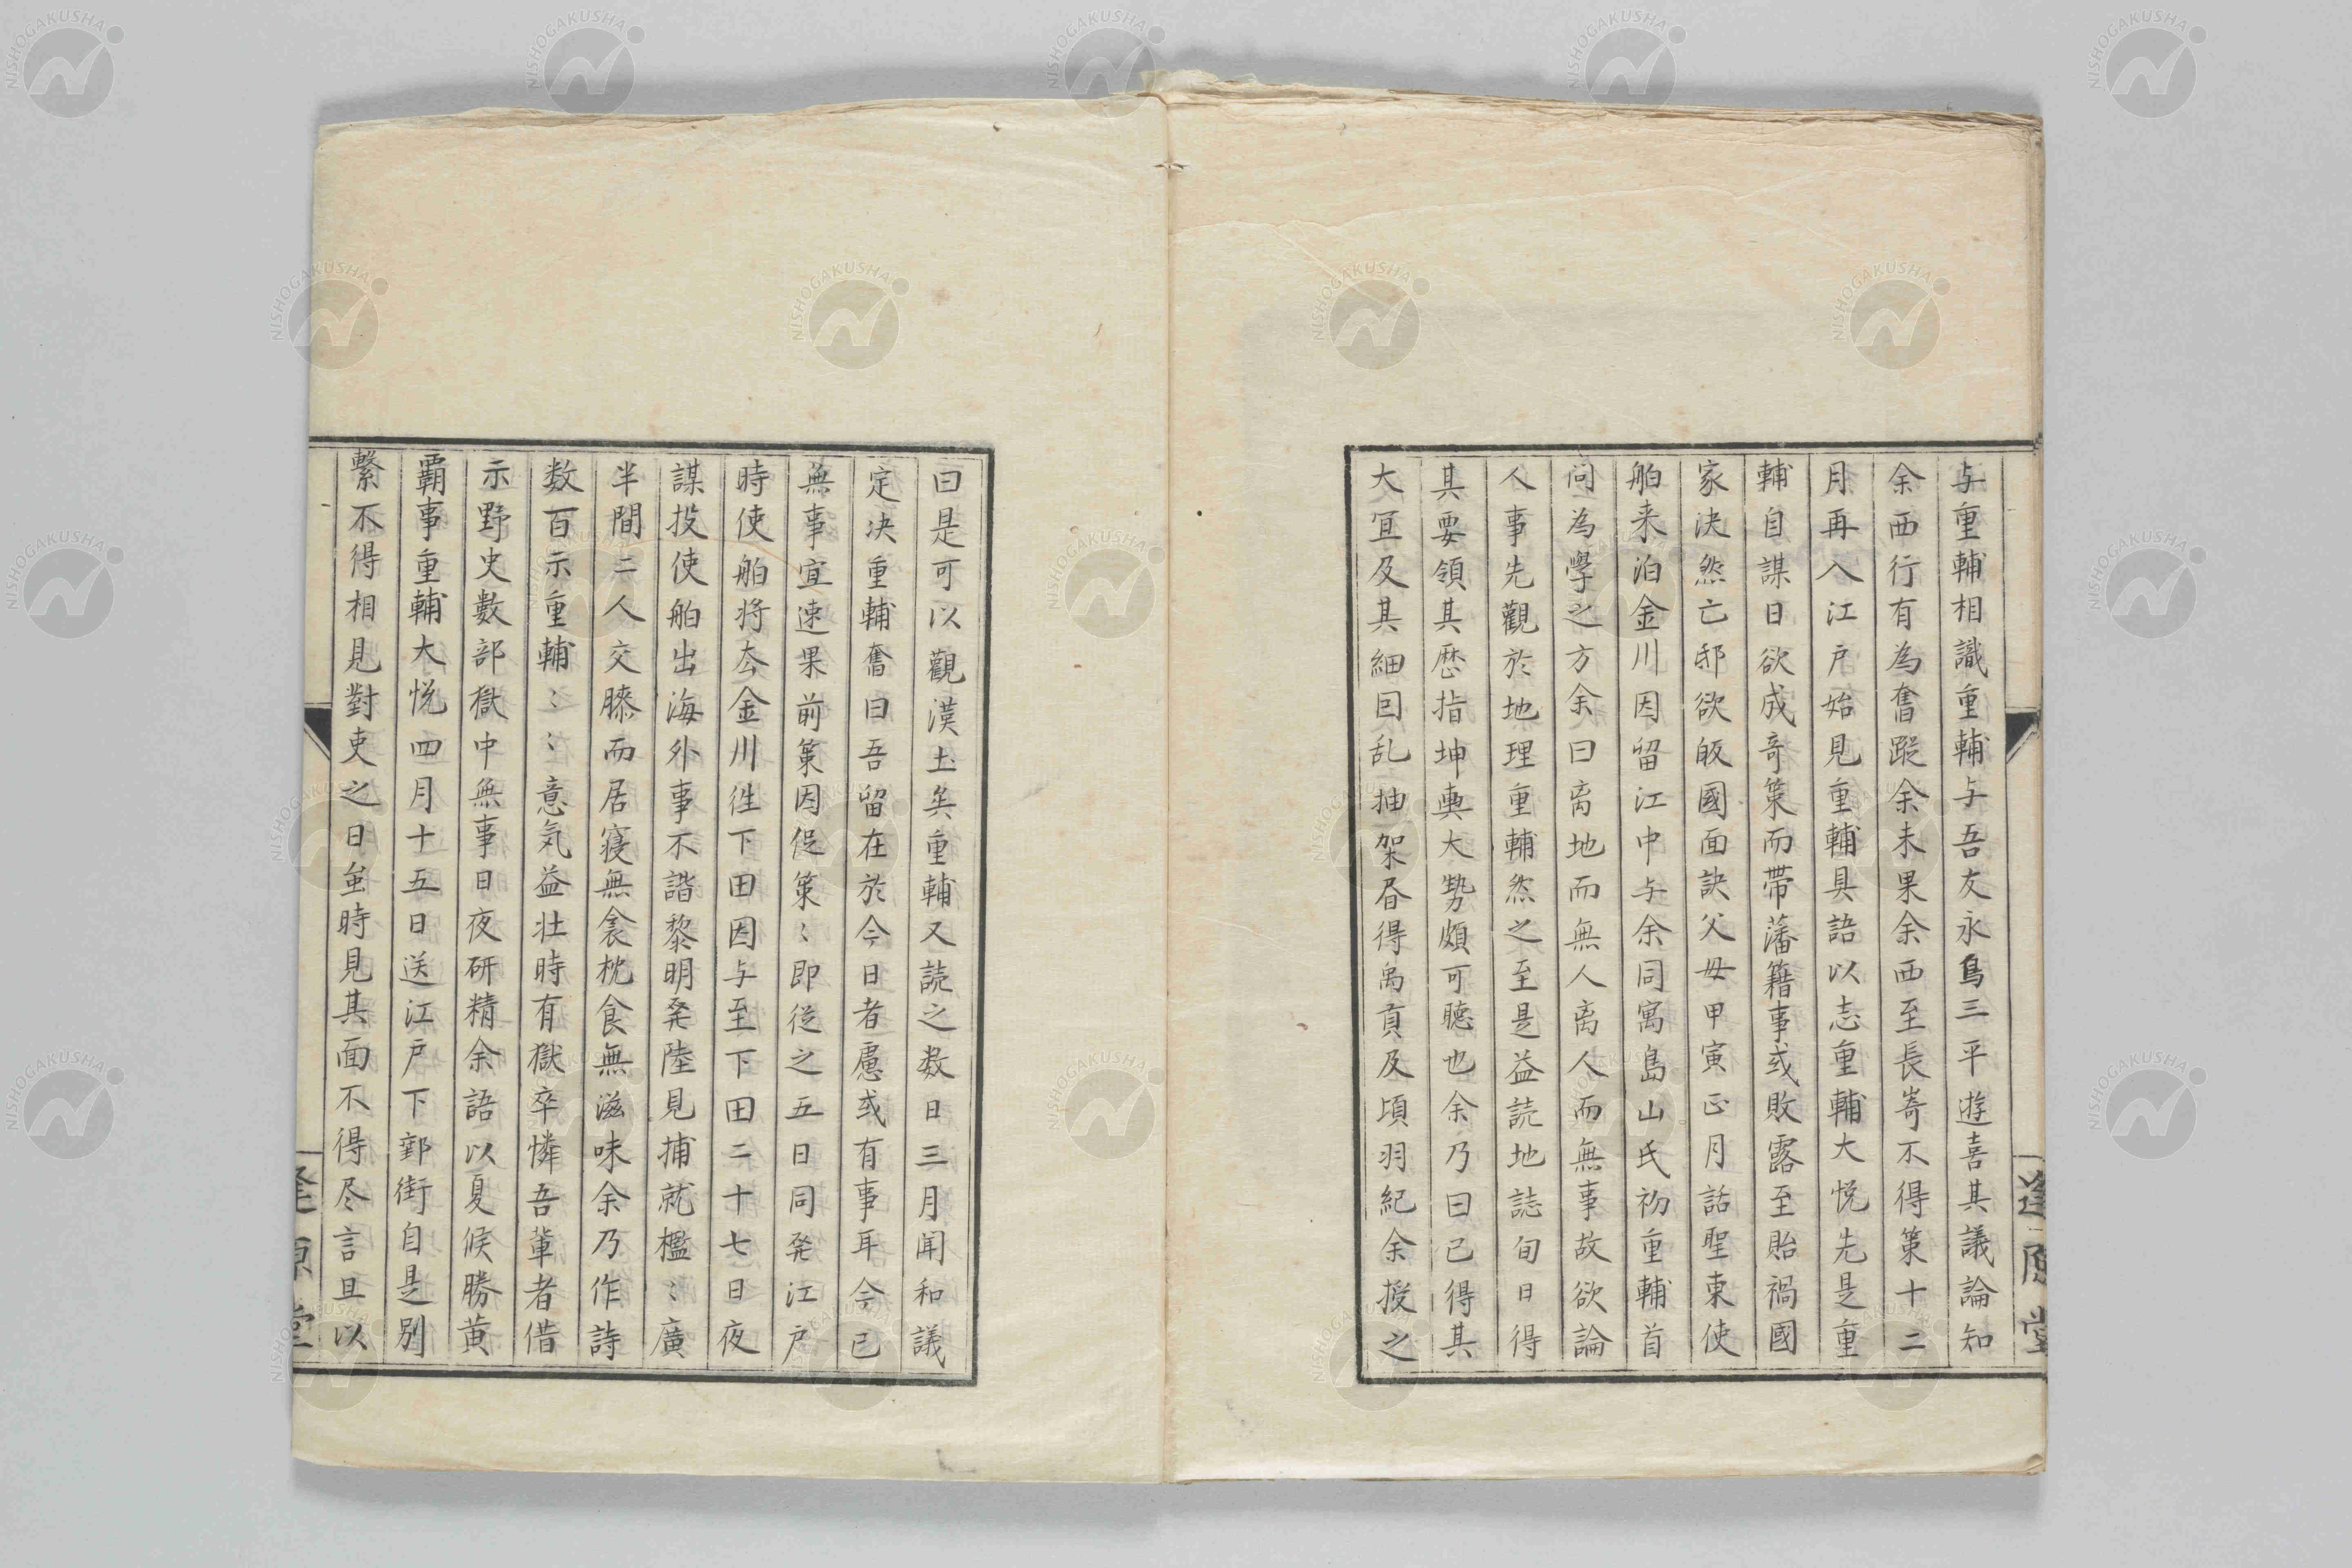 与重輔相識重輔与吾友永鳥三平遊喜其議論知
余西行有為奮蹤余未果余西至長崎不得策十二
月再入江戸始見重輔具語以志重輔大悦先是重
輔自謀日欲成奇策而帯藩籍事或敗露至貽禍國
家決然亡邸欲皈國面訣父毋甲寅正月話聖東使
舶来泊金川因留江中与余同寓島山氏初重輔首
问為學之方余曰离地而無人离人而無事故欲論
人事先觀於地理重輔然之至是益読地誌旬日得
其要領其歴指坤輿大勢頗可聴也余乃曰已得其
大冝及其細因乱抽架昼得禹貢及項羽紀余授之
曰是可以觀漢土矣重輔又読之数日三月聞和議
定决重輔奮曰吾留在於今日者慮或有事耳今已
無事宜速果前策因促策〻即従之五日同発江戸
時使舶将去金川徃下田因与至下田二十七日夜
謀投使舶出海外事不諧黎明発陸見捕就檻〻廣
半間二人交膝而居寝無衾枕食無滋味余乃作詩
数百示重輔〻〻意気益壮時有獄卒憐吾輩者借
示野史數部獄中無事日夜研精余語以夏候勝黄
覇事重輔大悦四月十五日送江戸下郵街自是別
繋不得相見對吏之日虽時見其面不得尽言且以
逢原堂
逢原堂